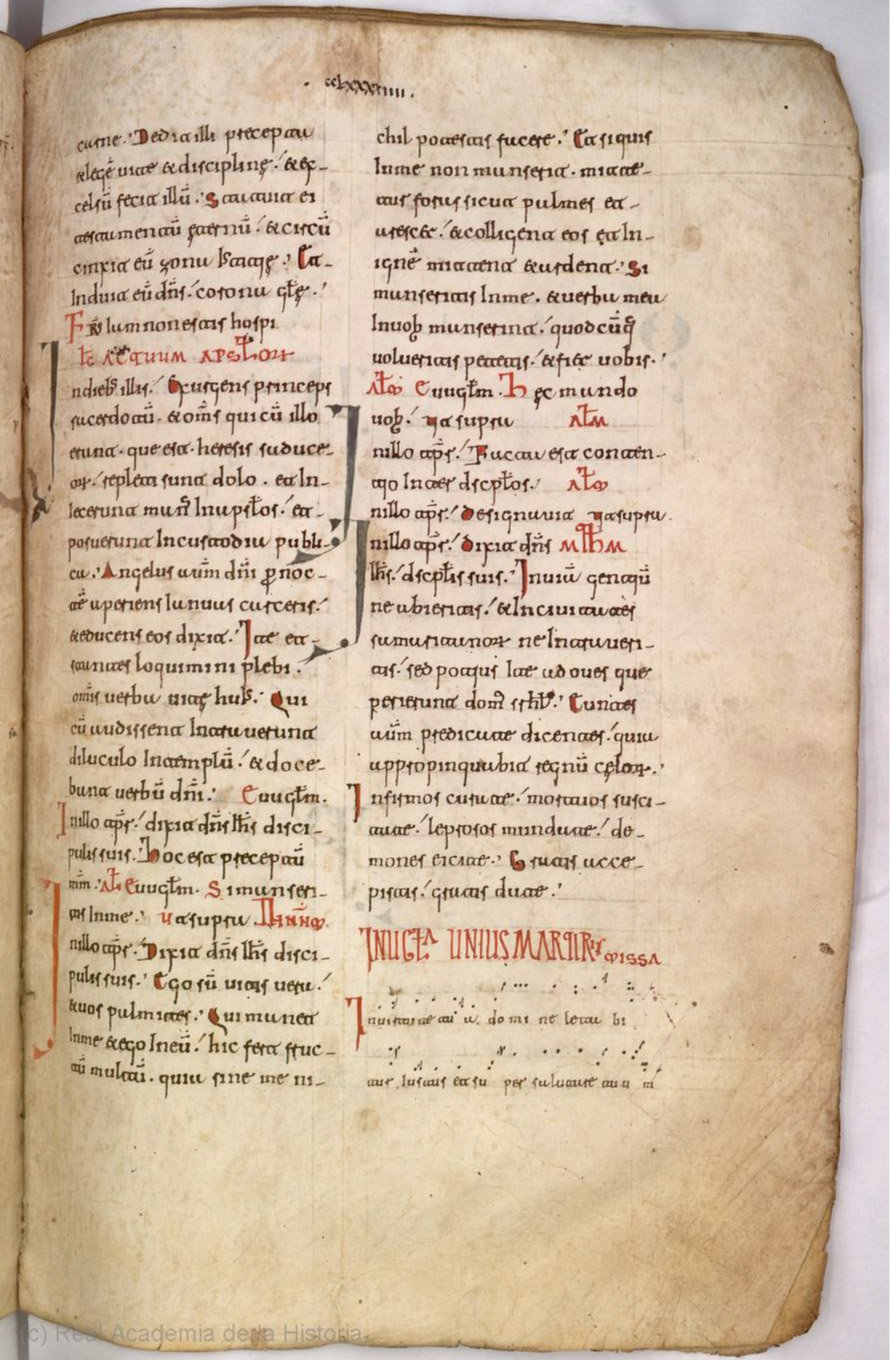 · cclxxxiiii ·
carne. Dedit illi precepta
& legē vite & discipline. & ex-
celsū fecit illū. Statuit ei
testamentū eternū. & circū
cinxit eū zona iustitie. Et
Induit eū dn̄s. coronā glē.
Fr̄s Iam non estis hospi
Lc̄ Actuum Apstlor
n dieb; illis. Exurgens princeps
sacerdotū. & om̄s qui cū illo
erant. que est heresis saduce-
or. repleti sunt dolo. et In-
iecerunt man̄ In apstlos. et
posuerunt In custodia publi-
ca. Angelus autm̄ dn̄i p noc-
tē aperiens Ianuas carceris.
& educens eos dixit. Ite et
stantes loquimini plebi.
om̄a verba vite hui;. Qui
cū audissent Intraverunt
diluculo In templū. & doce-
bant verbū dn̄i. Evvgl̄m.
In illo tp̄r. dixit dn̄s Ih̄s disci-
pulis suis. Hoc est preceptū
mm̄. Al̄ Evvgl̄m. Si manseri-
tis In me. ut a supra.
n illo tp̄r. Dixit dn̄s Ih̄s disci-
pulis suis. Ego sū vitis vera.
& vos palmites. Qui manet
In me & ego In eū. hic fert fruc-
tū multū. quia sine me ni-
chil potestis facere. Et si quis
In me non manserit. mitte-
tur foras sicut palmes et
arescet. & colligent eos et In
ignē mittent & ardent. Si
manseritis In me. & verba mea
In vob manserint. quodcūq
volueritis petetis. & fiet vobis.
Al̄m Evvgl̄m. Hec mando
vob. ut a supra Al̄m
n illo tp̄r. Facta est conten-
tio Inter dscpl̄os. Al̄m
n illo tp̄r. Designavit ut a supra.
n illo tp̄r. dixit dn̄s
Ih̄s. dscpl̄is suis. In viā gentiū
ne abieritis. & In civitates
samaritanor ne Intraveri-
tis. sed potius Ite ad oves que
perierunt dom̄ srhl. Euntes
autm̄ predicate dicentes. quia
appropinquabit regnū celor.
Infirmos curate. mortuos susci-
tate. leprosos mundate. de-
mones eicite. Gratis acce-
pistis. gratis date.
IN UIGLA UNIUS MARTIRis MISSA
In virtute tu a. do mi ne leta bi
tur. Iustus et su per salutare tuu m
(c) Real Academia de la Historia